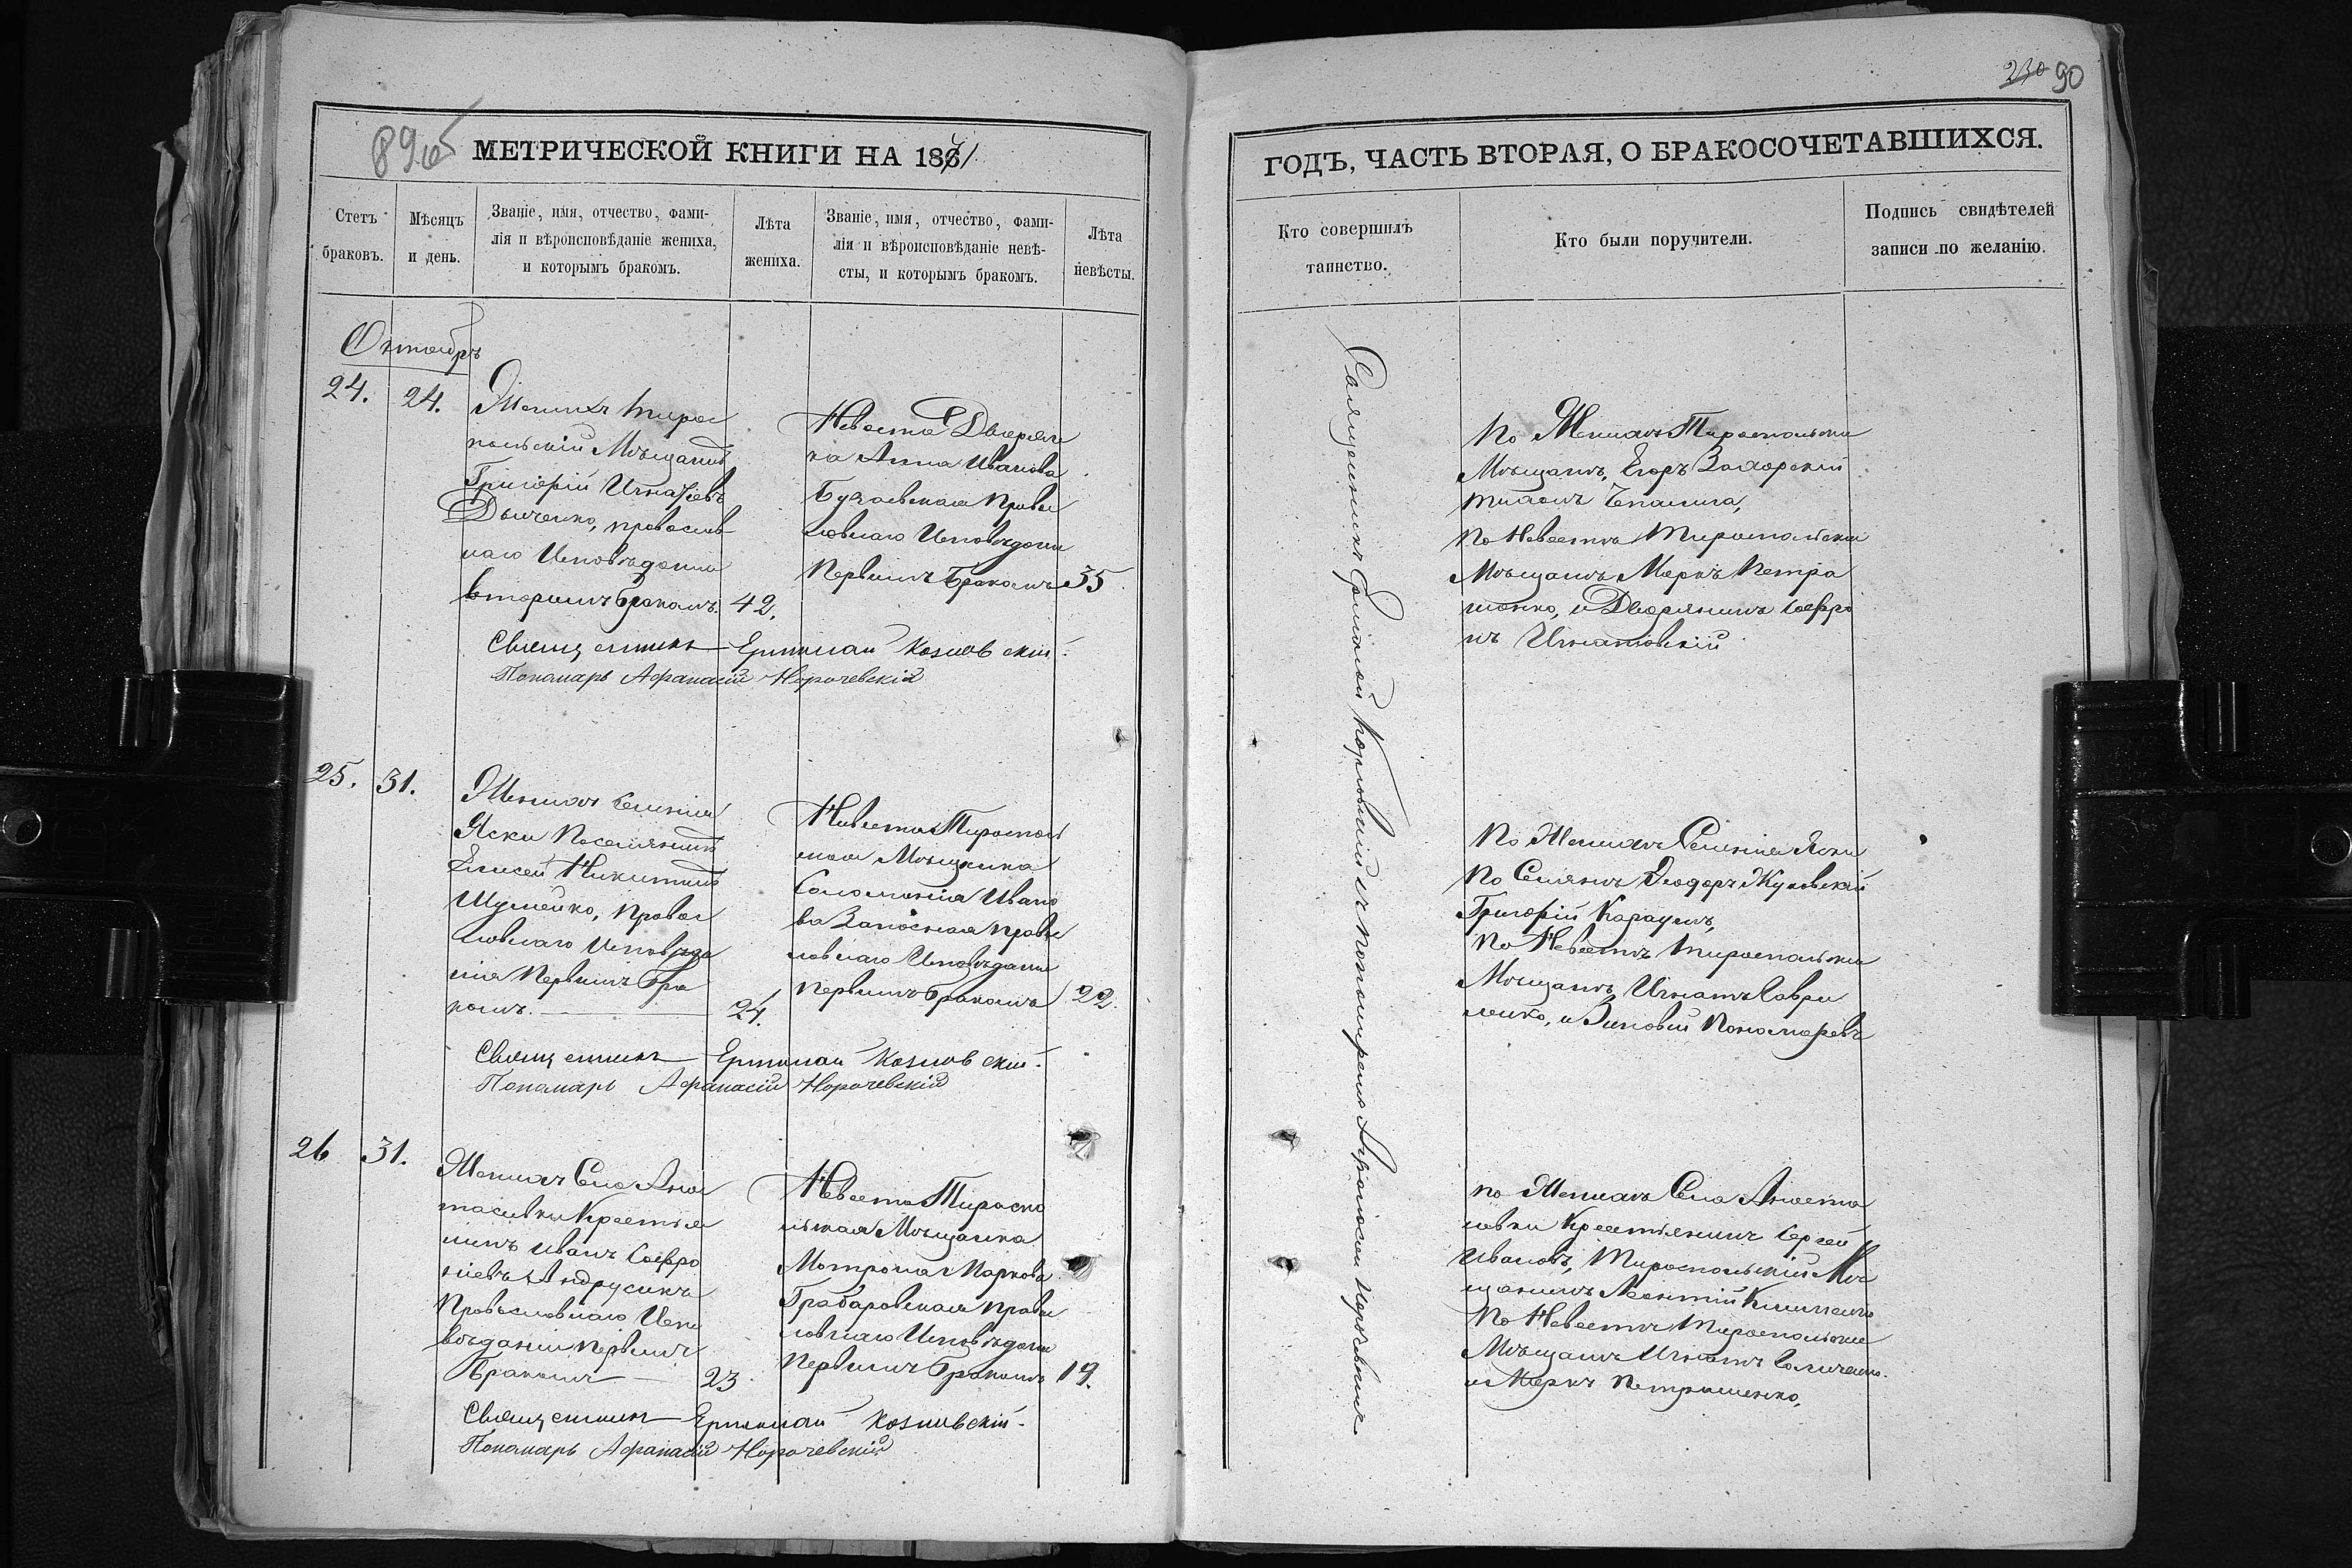 896
МЕТРИЧЕСКОЙ КНИГИ НА 1871
Счетъ браковъ.
Мѣсяцъ и день.
Званіе, имя, отчество, фами-
лія и вѣроисповѣданіе жениха,
и которымъ бракомъ.
Лѣта жениха.
Званіе, имя, отчество, фами-
лія и вѣроисповѣданіе невѣ-
сты, и которымъ бракомъ.
Лѣта невѣсты.
Октябрь
24. 24.
Женихъ Тирас
польскій Мѣщанинъ
Григорій Игнатіевъ
Дьяченко, православ
наго Исповѣданія
вторимъ бракомъ. 42.
Невѣста Дворян
ка Анна Иванова
Бучаевская Право
славнаго Исповѣданія
Первимъ Бракомъ 35
Священникъ Ермолай Козловскій.
Пономарь Афанасій Норочевскій
25. 31.
Женихъ Селенія
Яски Поселянинъ
Елисей Никитинъ
Шумейко, Правос
лавнаго Исповѣда
нія Первимъ Бра
комъ. 24.
Невѣста Тираспол
ская Мѣщанка
Соломонія Ивано
ва Запосная право
славнаго Исповѣданія
первимъ бракомъ 22.
Священникъ Ермолай Козловскій.
Пономарь Афанасій Норочевскій
26 31.
Женихъ Села Анас
тасіевки Крестья
нинъ Иванъ Софро
ніевъ Андрусикъ
Православнаго Испо
вѣданія первимъ
Бракомъ 23
Невѣста Тираспо
льская Мѣщанка
Матрона Маркова
Грабаровская право
славнаго Исповѣданія
Первимъ Бракомъ 19.
Священникъ Ермолай Козловскій.
Пономарь Афанасій Норочевскій
230 90
ГОДЪ, ЧАСТЬ ВТОРАЯ, О БРАКОСОЧЕТАВШИХСЯ.
Кто совершилъ таинство.
Кто были поручители.
Подпись свидѣтелей
записи по желанію.
Священникъ Ермолай Козловскій съ пономаремъ Афанасіемъ Норочевскимъ
По Женихѣ Тираспольскіе
Мѣщане, Егоръ Заморскій
По Невѣстѣ Тираспольскій
Мѣщанинъ Маркъ Петра
шенко, и Дворянинъ Софро
нъ Игнатовскій
По Женихѣ Селенія Яски
Поселяне Ѳеодоръ Жуковскій
Григорій Караулъ,
По Невѣстѣ Тираспольскіе
Мѣщане Игнатъ Саври
ленко, и Зиновій Пономаревъ
по Женихѣ Села Анаста
сіевки Крестьянинъ Сергей
Ивановъ, Тираспольскій Мѣ
щанинъ Леонтій
По Невѣстѣ Тираспольскіе
Мѣщане Игнатъ
и Маркъ Петрашенко,